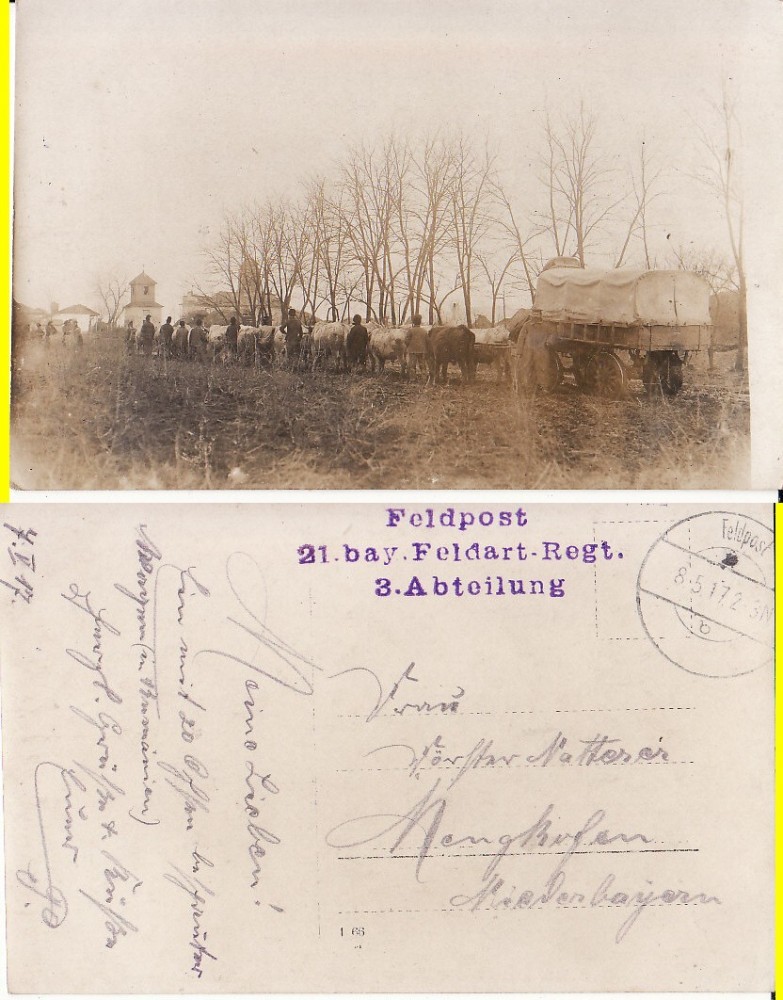 Feldpost
21.bay.Feldart-Regt.
3.Abteilung
Feldpost
8.5.17.2-3N
b
Frau
Förster Natterer
Mengkofen
Niederbayern
1 66
Meine Lieben!
Ein mit 20 Ochsen bespannter
Wagen (in Rumänien)
Herzl. Grüße u. Küsse
Euer
4.V.17.